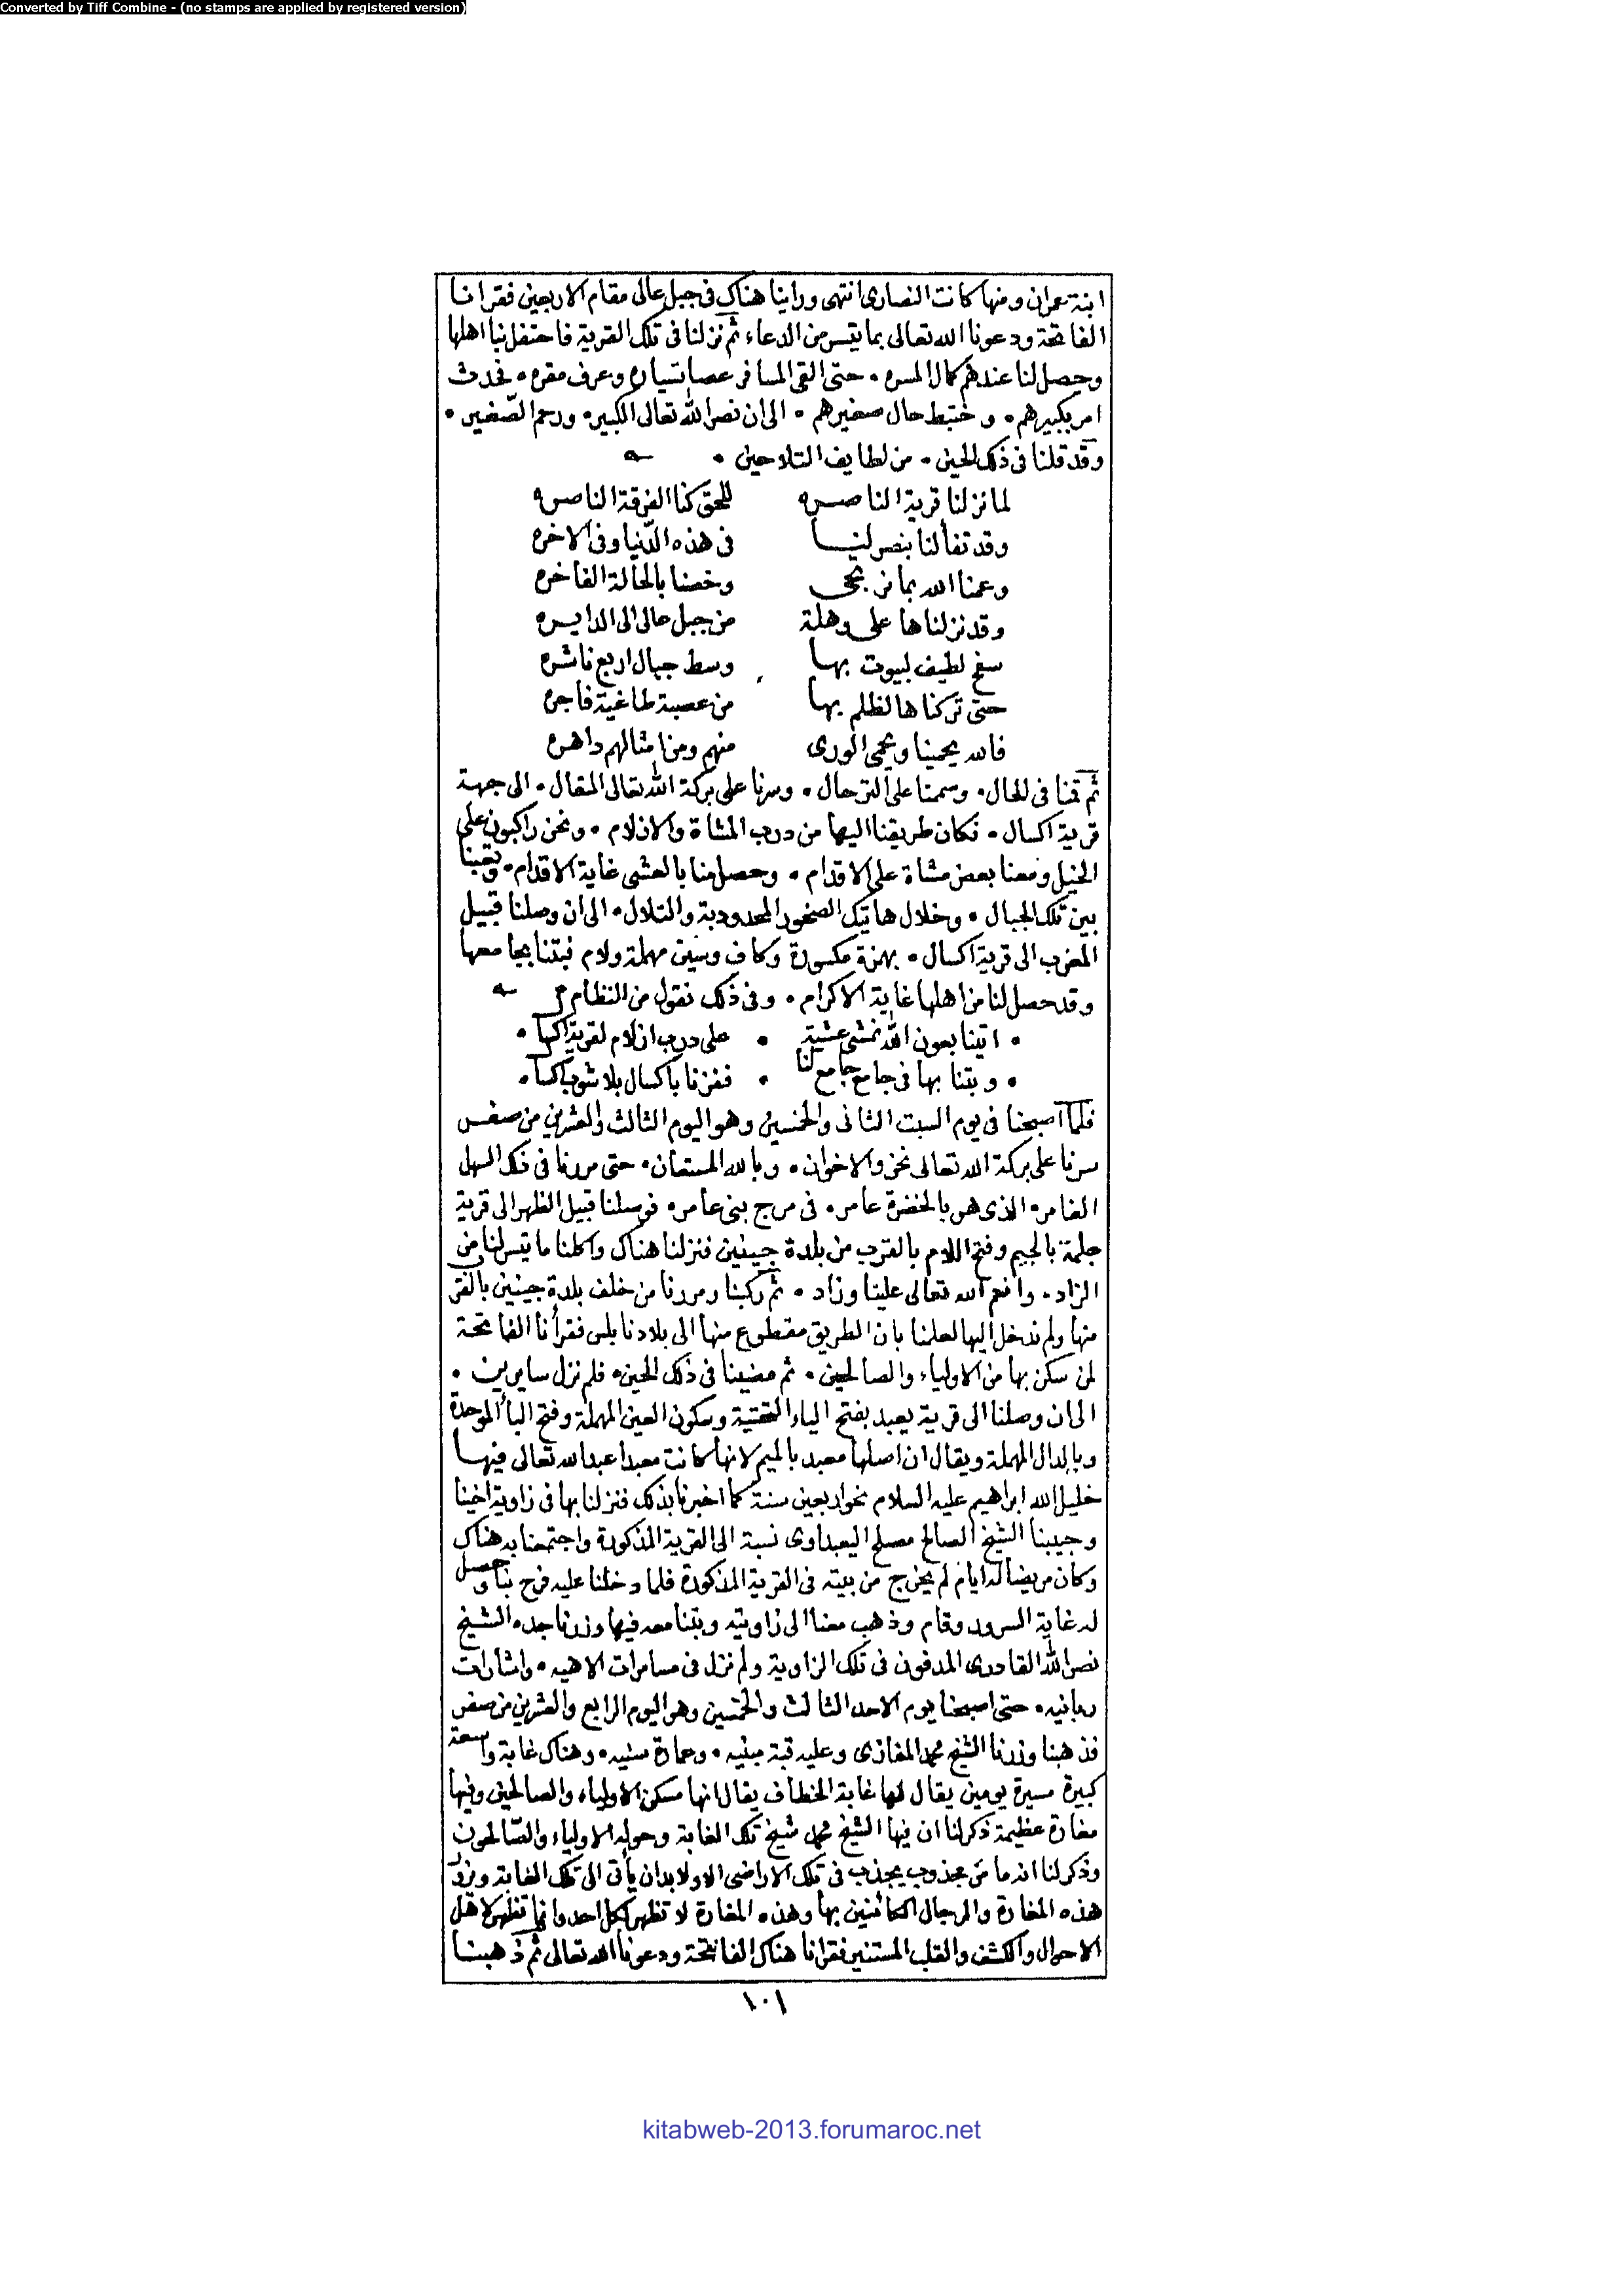 Converted by Tiff Combine - (no stamps are applied by registered version)
ابنة عمران ومنها كانت النصارى انتهى وراينا هناك فى جبل عالى مقام الاربعين فقرانا
الفاتحة ودعونا الله تعالى بما يتسر من الدعاء ثم نزلنا فى تلك القرية فاحتفل بنا اهلها
وحصل لنا عندهم كمال المسره ٠ حتى القى المسافر عصا تسياره وعرف مقره ٠ فحدث
امر بكبيرهم ٠ وختبط حال صغيرهم ٠ الى ان نصر الله تعالى الكبير ٠ ورحم الصّغير ٠
وقد قلنا فى ذلك الحين ٠ من لطايف التلاحين ٠
لما نزلنا قرية الناصره للحق كنا الفرقة الناصره
وقد تفألنا بنصر لنا فى هذه الدّنيا وفى الاخره
وعمنا الله بما نرتجى وخصنا بالحالة الفاخره
وقد نزلناها على وهلة من جبل عالى الى الدايره
سفح لطيف لبيوت بها وسط جبال اربع ناشره
حتى تركناها لظلم بها من عصبة طاغية فاجره
فالله يحمينا ويحمى الورى منهم ومن امثالهم داهره
ثم قمنا فى الحال ٠ وسمنا على الترحال ٠ وسرنا على بركة الله تعالى المتعال ٠ الى جهة
قرية اكسال ٠ فكان طريقنا اليها من درب المشاة والازلام ٠ ونحن راكبون على
الخيل ومعنا بعض مشاة على الاقدام ٠ وحصل منا بالمشى غاية الاقدام ٠ وتعبنا
بين تلك الجبال ٠ وخلال هاتيك الصخور المحدودبة والتلال ٠ الى ان وصلنا قبيل
المغرب الى قرية اكسال ٠ بهمزة مكسورة وكاف وسين مهملة ولام فبتنا بجامعها
وقد حصل لنا من اهلها غاية الاكرام ٠ وفى ذلك نقول من النظام
٠ اتينا بعون الله نمشى عشية ٠ على درب ازلام لقرية اكسال ٠
٠ وبتنا بها فى جامع جامع لنا ٠ ففزنا باكسال بلا شوب اكسال ٠
فلما اصبحنا فى يوم السبت الثانى والخمسين وهو اليوم الثالث والعشرين من صفر
سرنا على بركة الله تعالى نحن والاخوان ٠ وبالله المستعان ٠ حتى مررنا فى ذلك السهل
الغامر ٠ الذى هو بالخضرة عامر ٠ فى مرج بنى عامر ٠ فوصلنا قبيل الظهر الى قرية
جلمة بالجيم وفتح اللام بالقرب من بلدة جينين فنزلنا هناك واكلنا ما يتسر لنا من
الزاد ٠ وانعم الله تعالى علينا وزاد ٠ ثم ركبنا ومررنا من خلف بلدة جينين بالقرب
منها ولم ندخل اليها لعلمنا بان الطريق مقطوع منها الى بلاد نابلس فقرأنا الفاتحة
لمن سكن بها من الاولياء والصالحين ٠ ثم مضينا فى ذلك الحين ٠ فلم نزل سايرين ٠
الى ان وصلنا الى قرية يعبد بفتح الياء التحتية وسكون العين المهملة وفتح البأ الموحدة
وبالدال المهملة ويقال ان اصلها معبد بالميم لانها كانت معبدا عبد الله تعالى فيها
خليل الله ابراهيم عليه السلام نحو اربعين سنة كما اخبرنا بذلك فنزلنا بها فى زاوية اخينا
وحبيبنا الشيخ الصالح مصلح اليعبداوى نسبة الى القرية المذكورة واجتمعنا به هناك
وكان مريضا له ايام لم يخرج من بيته فى القرية المذكورة فلما دخلنا عليه فرح بنا وحصل
له غاية السرور وقام وذهب معنا الى زاويته وبتنا معه فيها وزرنا جده الشيخ
نصر الله القادرى المدفون فى تلك الزاوية ولم نزل فى مسامرات الاهيه ٠ واشارات
ربانيه ٠ حتى اصبحنا يوم الاحد الثالث والخمسين وهو اليوم الرابع والعشرين من صفر
فذهبنا وزرنا الشيخ محمد المغازى وعليه قبة مبنيه ٠ وعمارة سنيه ٠ وهناك غابة واسعة
كبيرة مسيرة يومين يقال لها غابة الخطاف يقال انها مسكن الاولياء والصالحين وفيها
مغارة عظيمة ذكر لنا ان فيها الشيخ محمد شيخ تلك الغابة وحوله الاولياء والصّالحون
وذكر لنا انه ما من مجذوب يجذب فى تلك الاراضى الا ولا بد ان يأتى الى تلك الغابة ويزور
هذه المغارة والرجال الكائنين بها وهذه المغارة لا تظهر لكل احد وانما تظهر لاهل
الاحوال والكشف والقلب المستنير فقرانا هناك الفاتحة ودعونا الله تعالى ثم ذهبنا
١٠١
kitabweb-2013.forumaroc.net